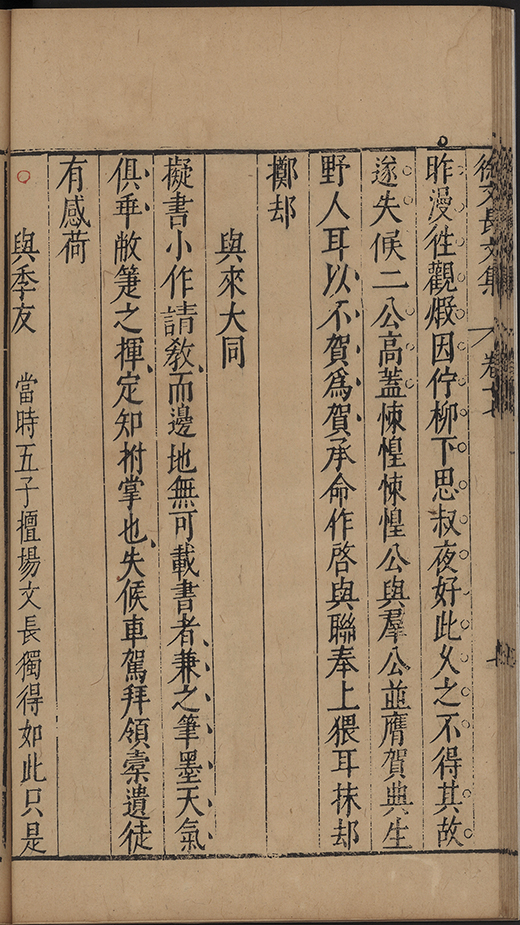 徐文長文集　卷十七
昨漫徃觀煅因佇柳下思叔夜好此久之不得其故
遂失候二公高蓋悚惶悚惶公與羣公並膺賀典生
野人耳以不賀爲賀承命作啓與聯奉上猥耳抹却
擲却
與來大同
擬書小作請敎而邊地無可載書者兼之筆墨天氣
俱乖敝箑之揮定知拊掌也失候車駕拜領橐遺徒
有感荷
與季友　當時五子擅場文長獨得如此只是